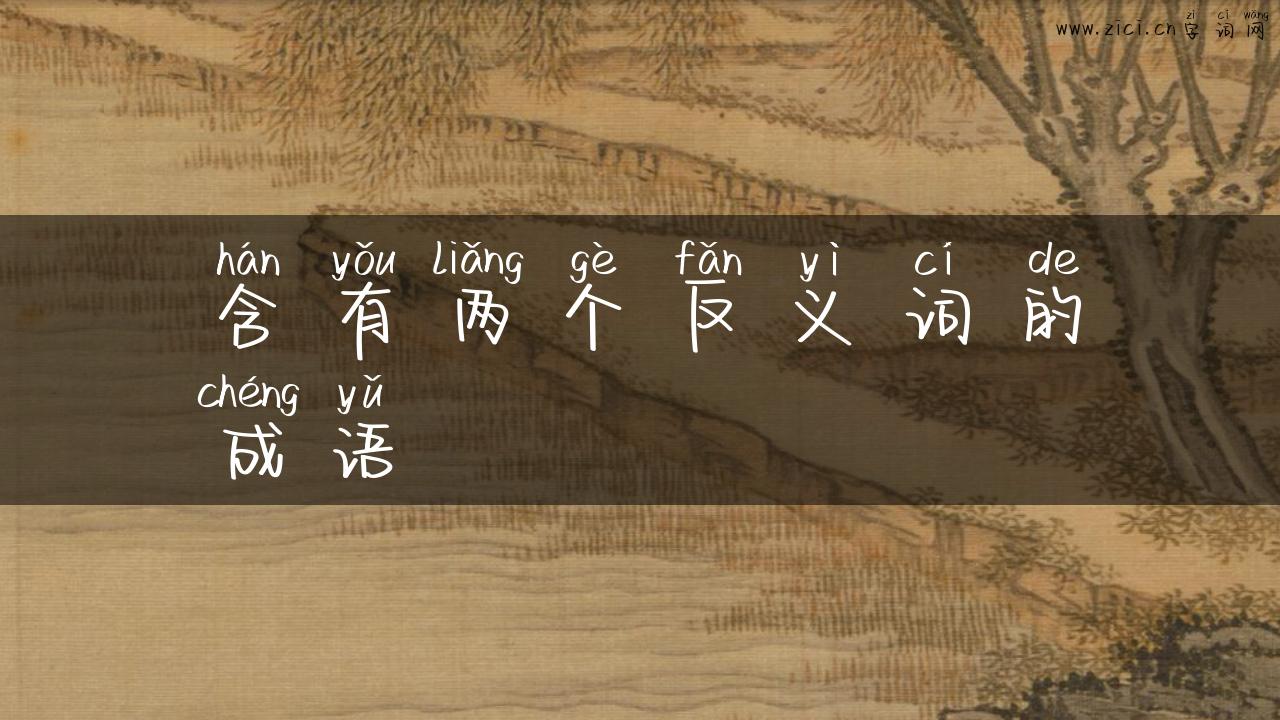 zì cí wǎng
www.zici.cn字词网
hán yǒu liǎng gè fǎn yì cí de
含有两个反义词的
chéng yǔ
成语